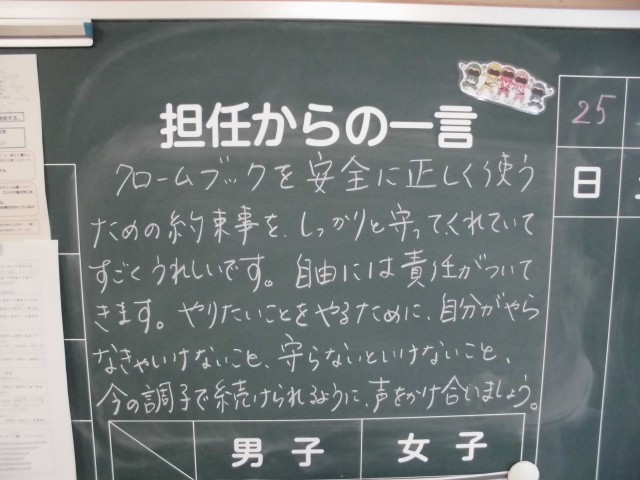 担任からの一言
クロームブックを安全に正しく使う
ための約束事を、しっかりと守ってくれていて
すごくうれしいです。自由には責任がついて
きます。やりたいことをやるために、自分がやら
なきゃいけないこと、守らないといけないこと、
今の調子で続けられるように、声をかけ合いましょう。
25
日
男子
女子